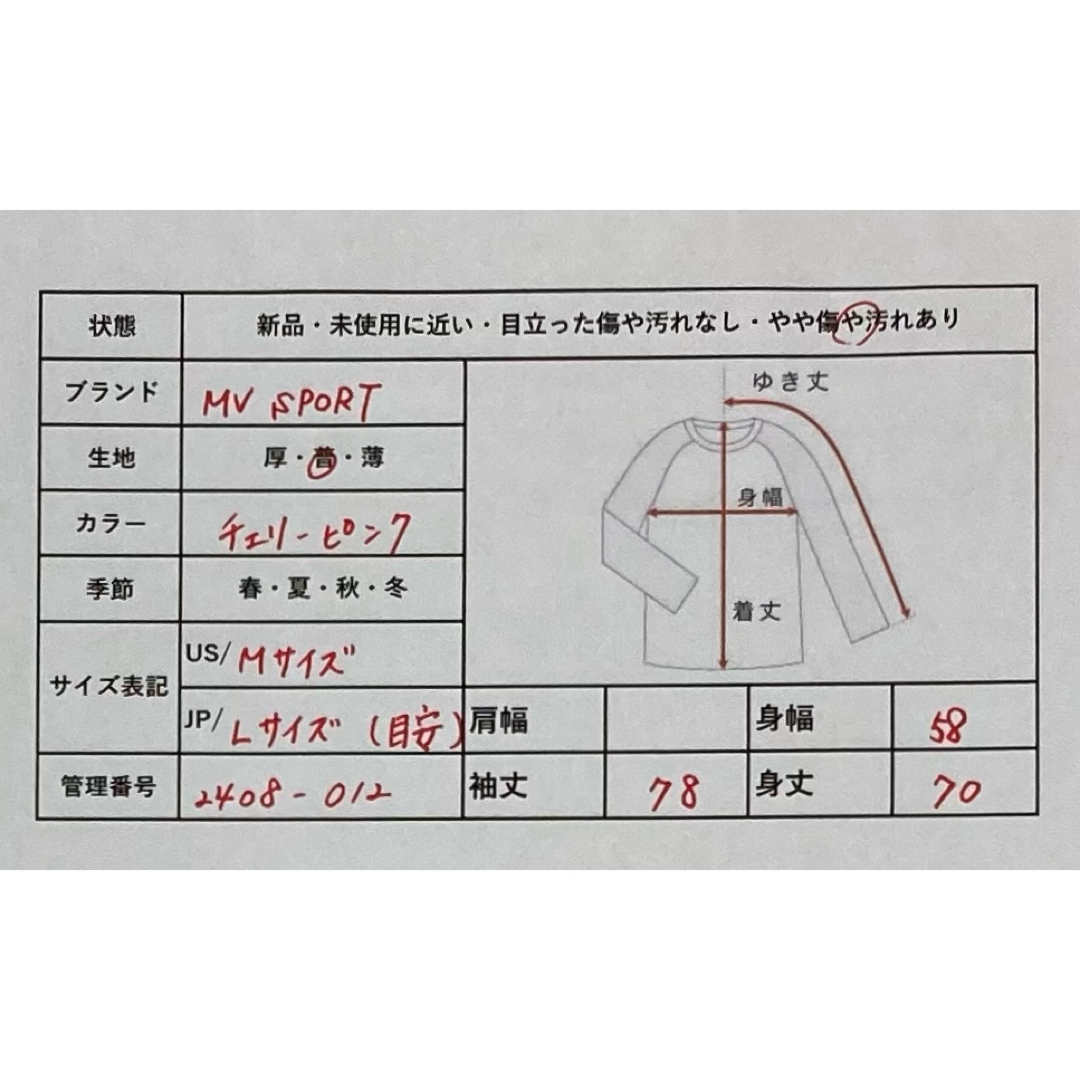 状態 新品・未使用に近い・目立った傷や汚れなし・やや傷や汚れあり
ブランド MV SPORT
生地 厚・普・薄
カラー チェリーピンク
季節 春・夏・秋・冬
サイズ表記 US/ Mサイズ
JP/ Lサイズ (目安)
管理番号 2408-012
ゆき丈
身幅
着丈
肩幅 身幅 58
袖丈 78 身丈 70